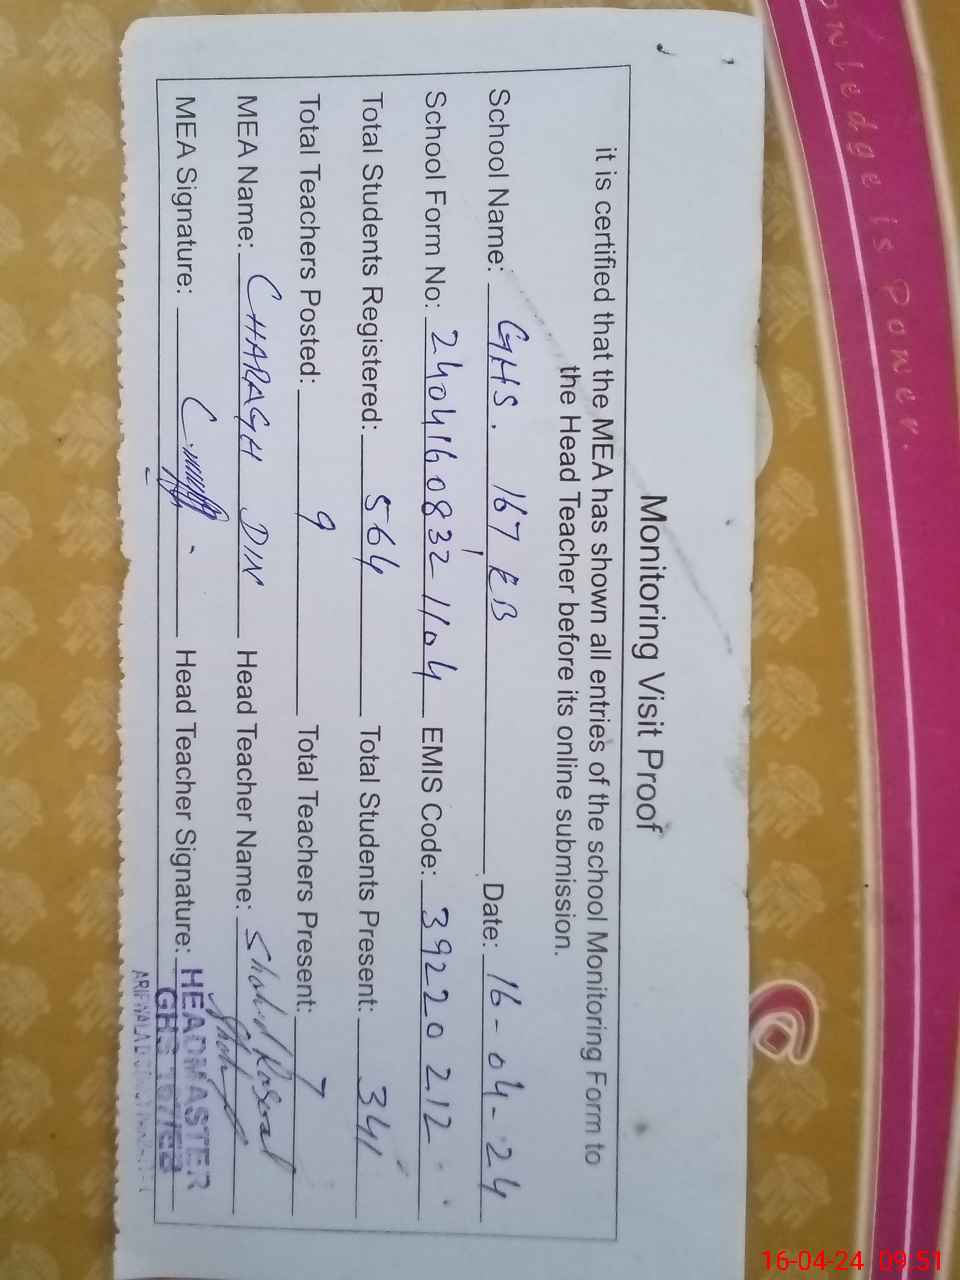 Monitoring Visit Proof
it is certified that the MEA has shown all entries of the school Monitoring Form to
the Head Teacher before its online submission.
School Name: GHS. 167 EB Date: 16-04-24
School Form No: 2404160832 1104 EMIS Code: 39220212
Total Students Registered: 564 Total Students Present: 341
Total Teachers Posted: 9 Total Teachers Present: 7
MEA Name: CHARAGH DIN Head Teacher Name: Shahid Rasool
MEA Signature: Head Teacher Signature: HEADMASTER
GHS 167/EB
nowledge is Power.
16-04-24 09:51